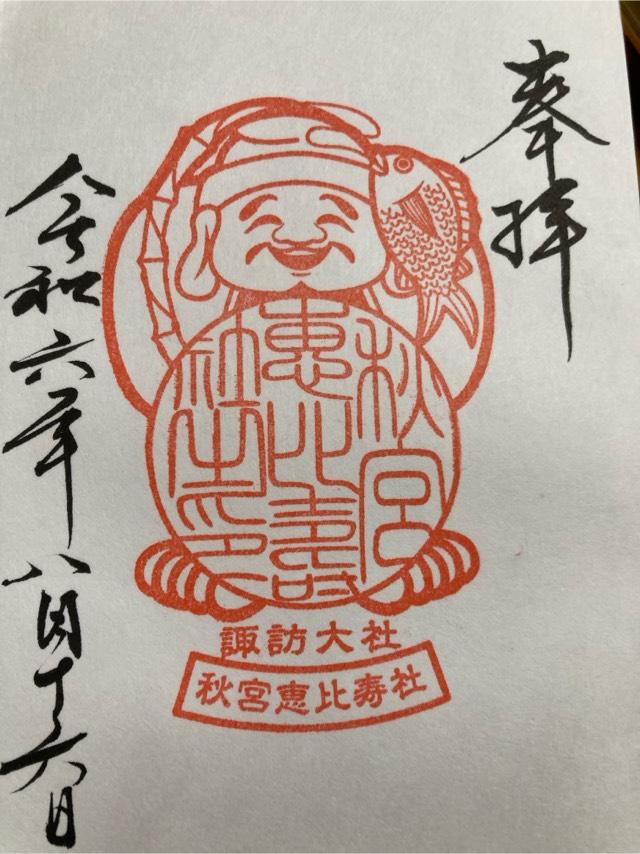 奉拝
秋宮
恵比寿
社之印
諏訪大社
秋宮恵比寿社
令和六年八月十六日